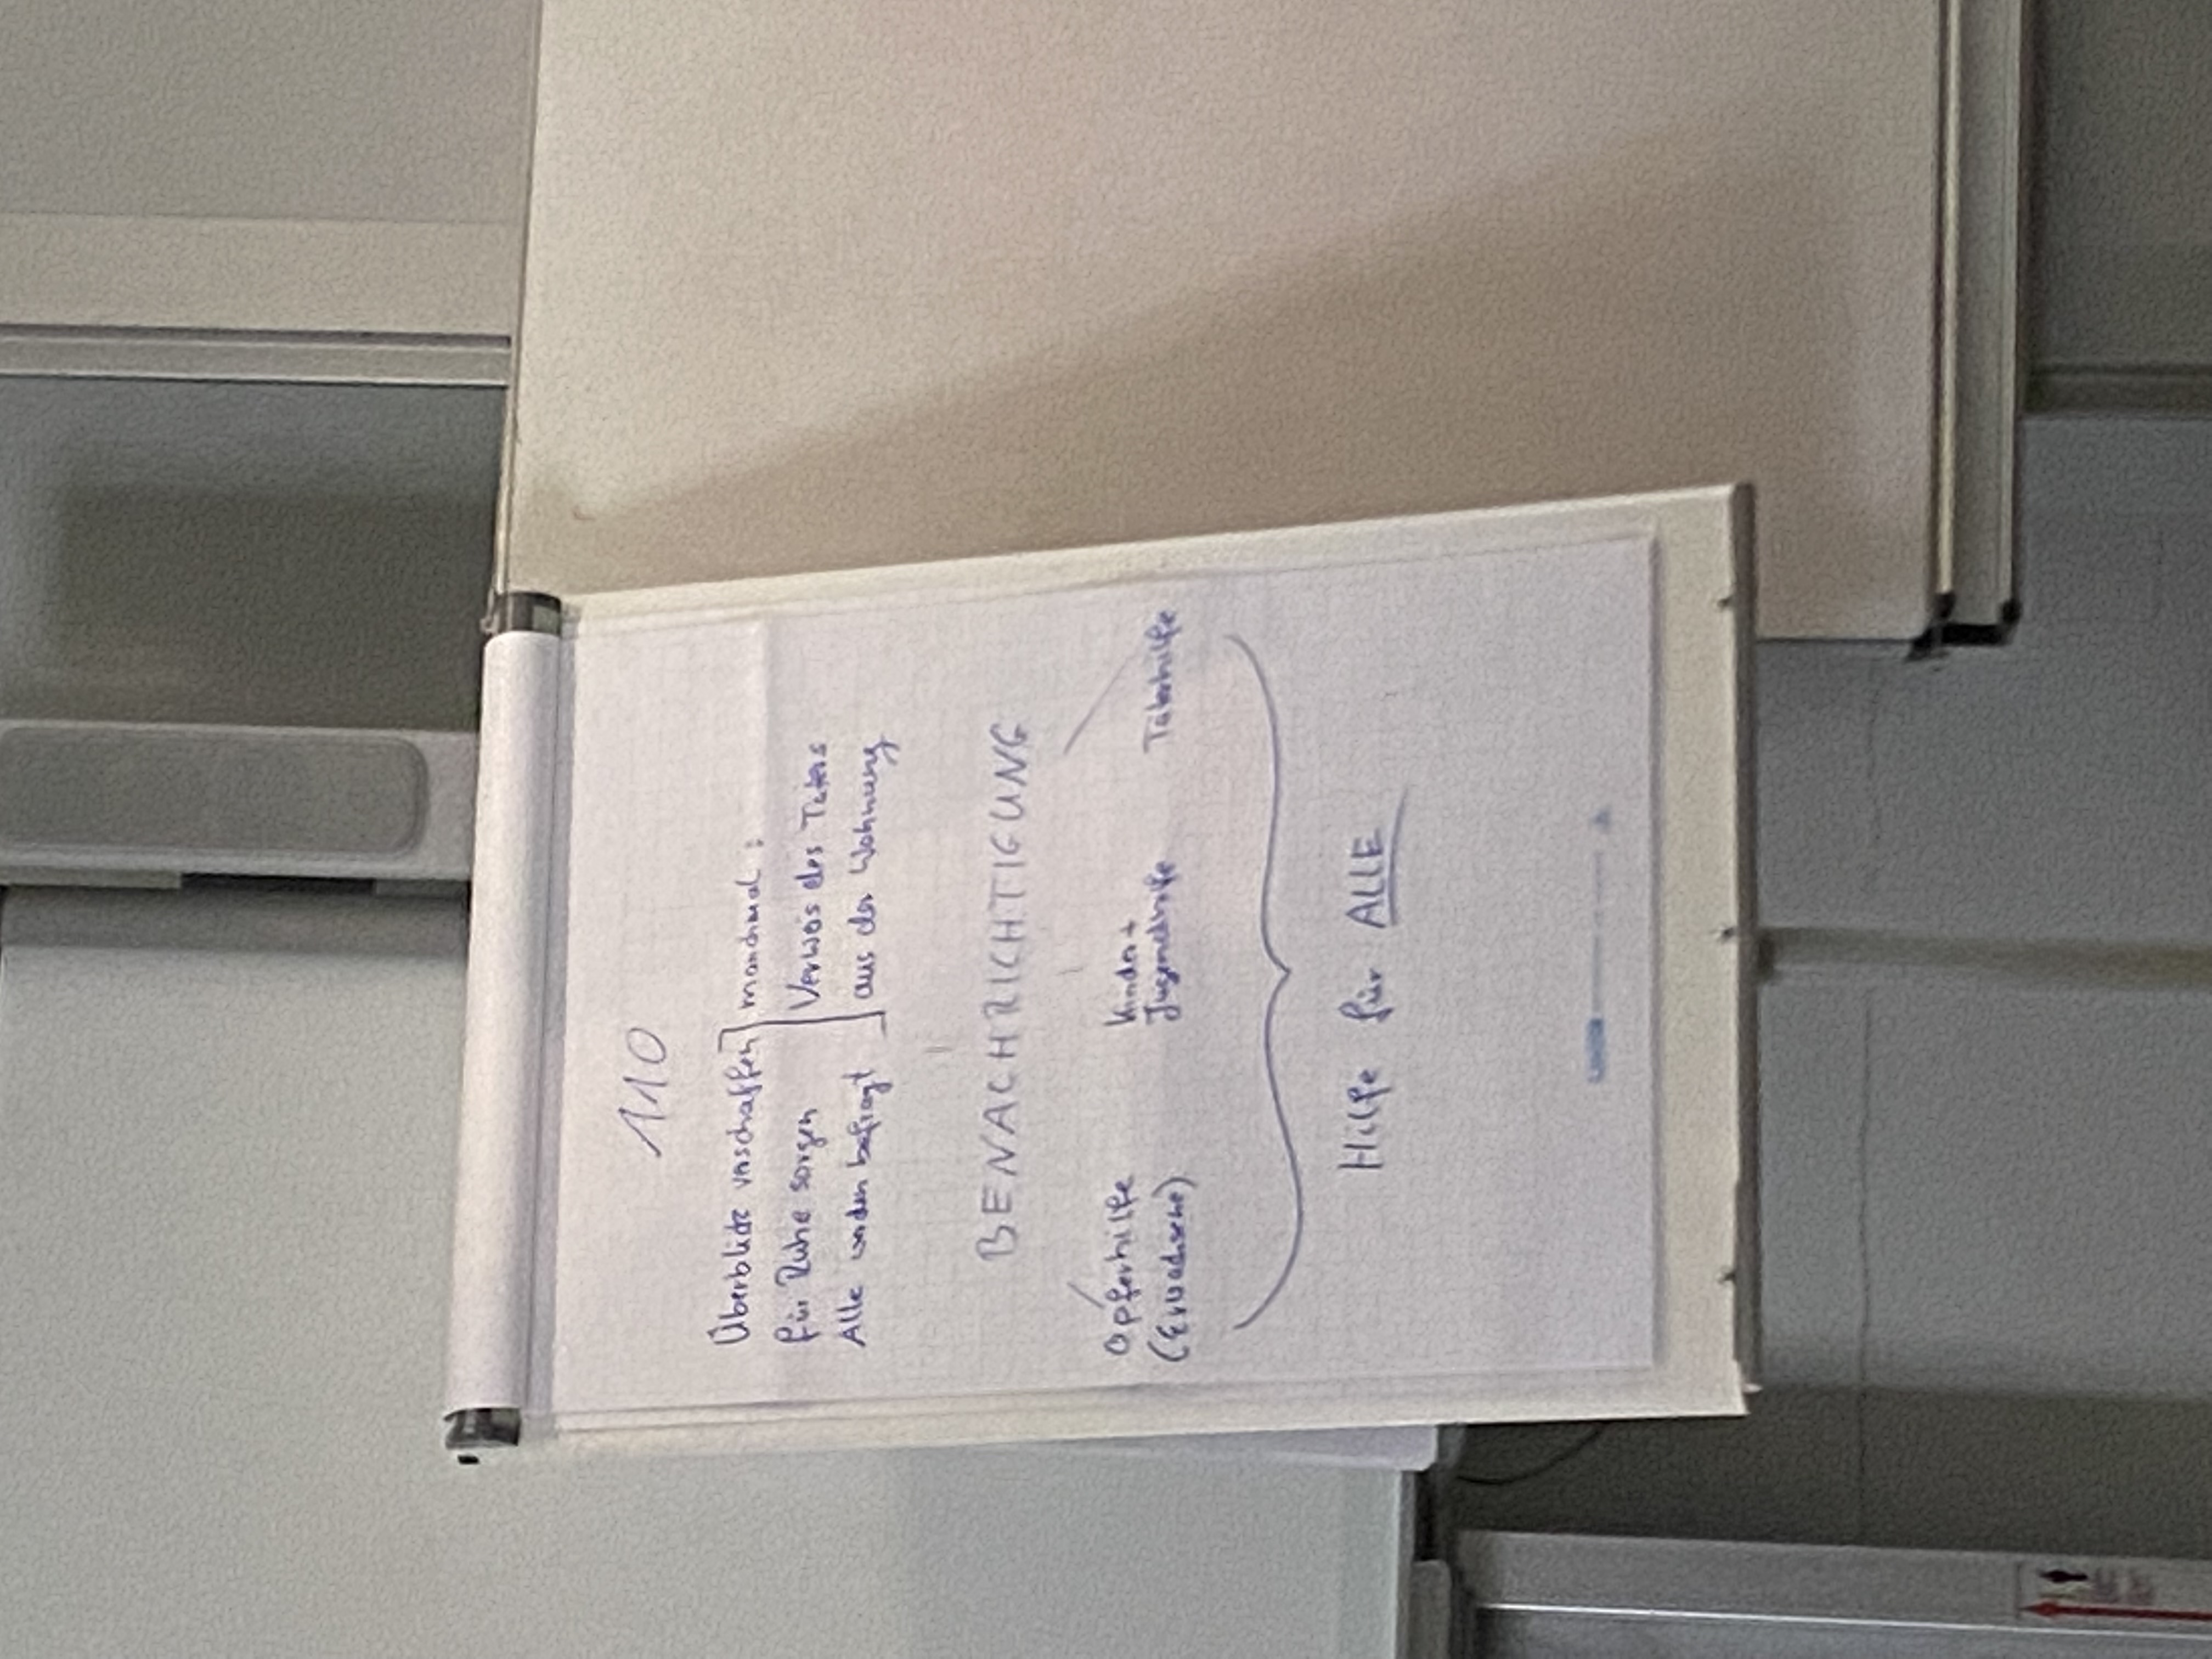 110
Überblick verschaffen } manchmal:
für Ruhe sorgen Verweis des Täters
Alle werden befragt aus der Wohnung
BENACHRICHTIGUNG
Opferhilfe
(Erwachsene)
Kinder+
Jugendhilfe
Täterhilfe
Hilfe für ALLE